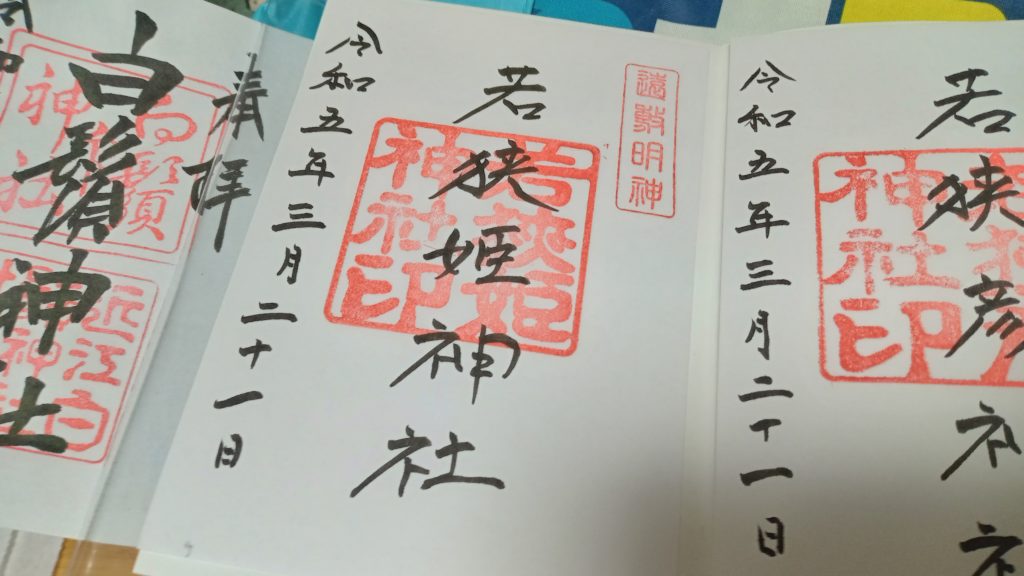 若狭彦
神社印
令和五年三月二十一日
遠敷明神
若狭姫神社
若狹姫
神社印
令和五年三月二十一日
奉拝
白鬚神社
白鬚
神社
近江白